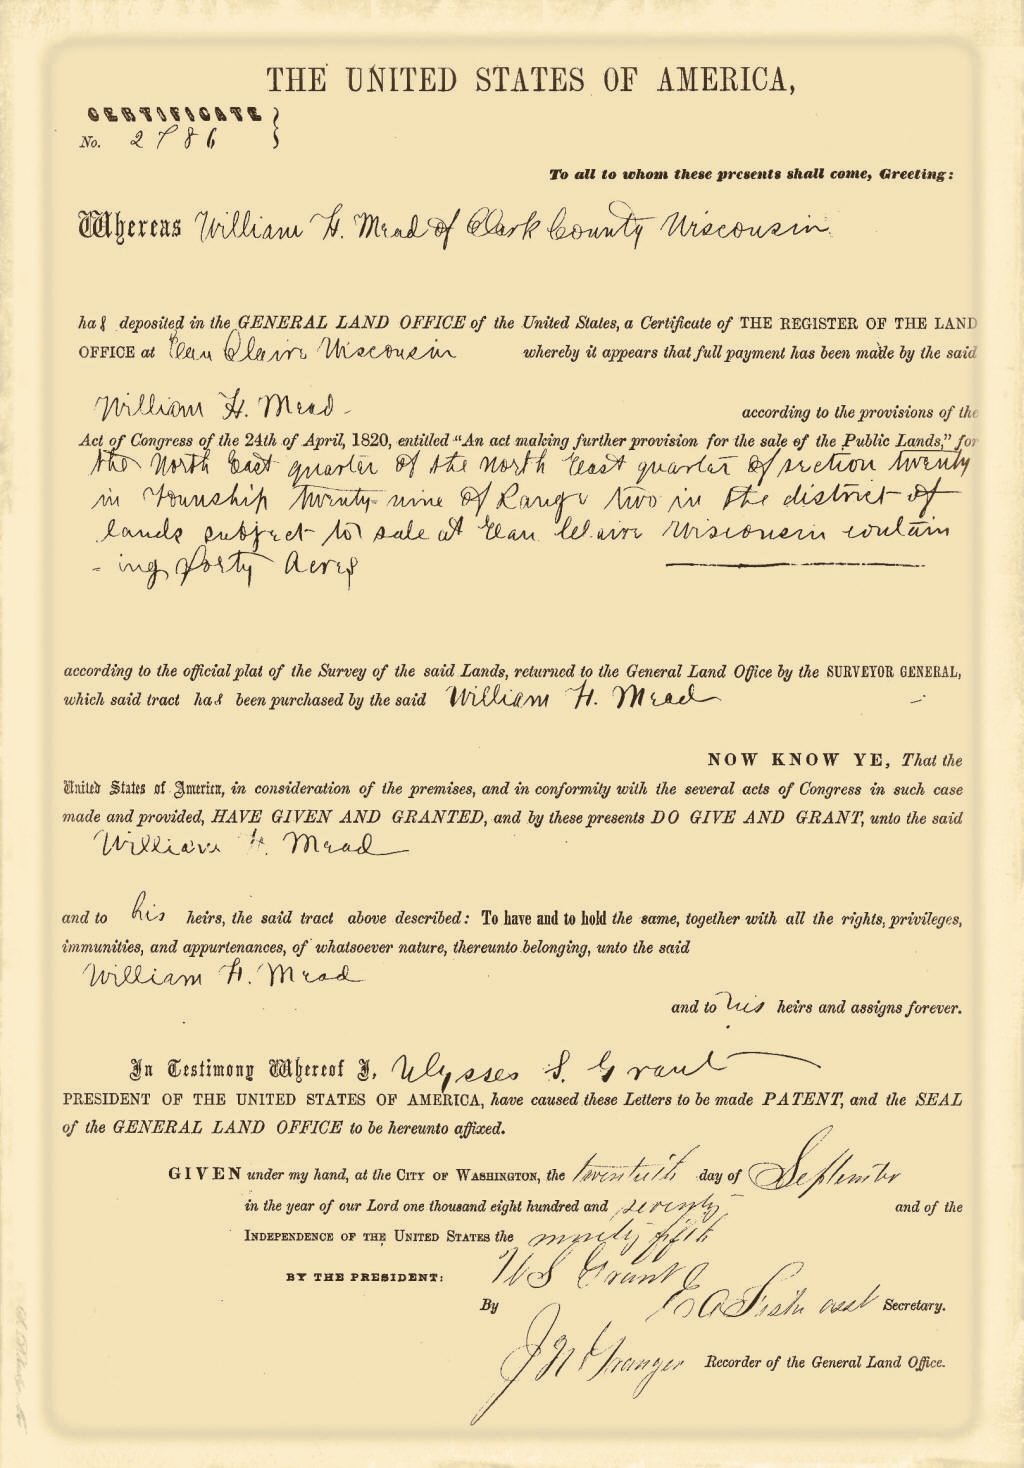 THE UNITED STATES OF AMERICA,
CERTIFICATE
No. 2786
To all to whom these presents shall come, Greeting:
Whereas William H. Mead of Clark County Wisconsin
has deposited in the GENERAL LAND OFFICE of the United States, a Certificate of THE REGISTER OF THE LAND
OFFICE at Eau Claire Wisconsin whereby it appears that full payment has been made by the said
William H. Mead according to the provisions of the
Act of Congress of the 24th of April, 1820, entitled "An act making further provision for the sale of the Public Lands," for
the North East quarter of the north East quarter of section twenty
in Township twenty-nine of Range two in the district of
lands subject to sale at Eau Claire Wisconsin contain
-ing forty Acres
according to the official plat of the Survey of the said Lands, returned to the General Land Office by the SURVEYOR GENERAL,
which said tract has been purchased by the said William H. Mead
NOW KNOW YE, That the
United States of America, in consideration of the premises, and in conformity with the several acts of Congress in such case
made and provided, HAVE GIVEN AND GRANTED, and by these presents DO GIVE AND GRANT, unto the said
William H. Mead
and to his heirs, the said tract above described: To have and to hold the same, together with all the rights, privileges,
immunities, and appurtenances, of whatsoever nature, thereunto belonging, unto the said
William H. Mead
and to his heirs and assigns forever.
In Testimony Whereof I, Ulysses S. Grant
PRESIDENT OF THE UNITED STATES OF AMERICA, have caused these Letters to be made PATENT, and the SEAL
of the GENERAL LAND OFFICE to be hereunto affixed.
GIVEN under my hand, at the CITY OF WASHINGTON, the twentieth day of September
in the year of our Lord one thousand eight hundred and seventy and of the
INDEPENDENCE OF THE UNITED STATES the ninety fifth
BY THE PRESIDENT: U S Grant
By asst Secretary.
J N Granger Recorder of the General Land Office.